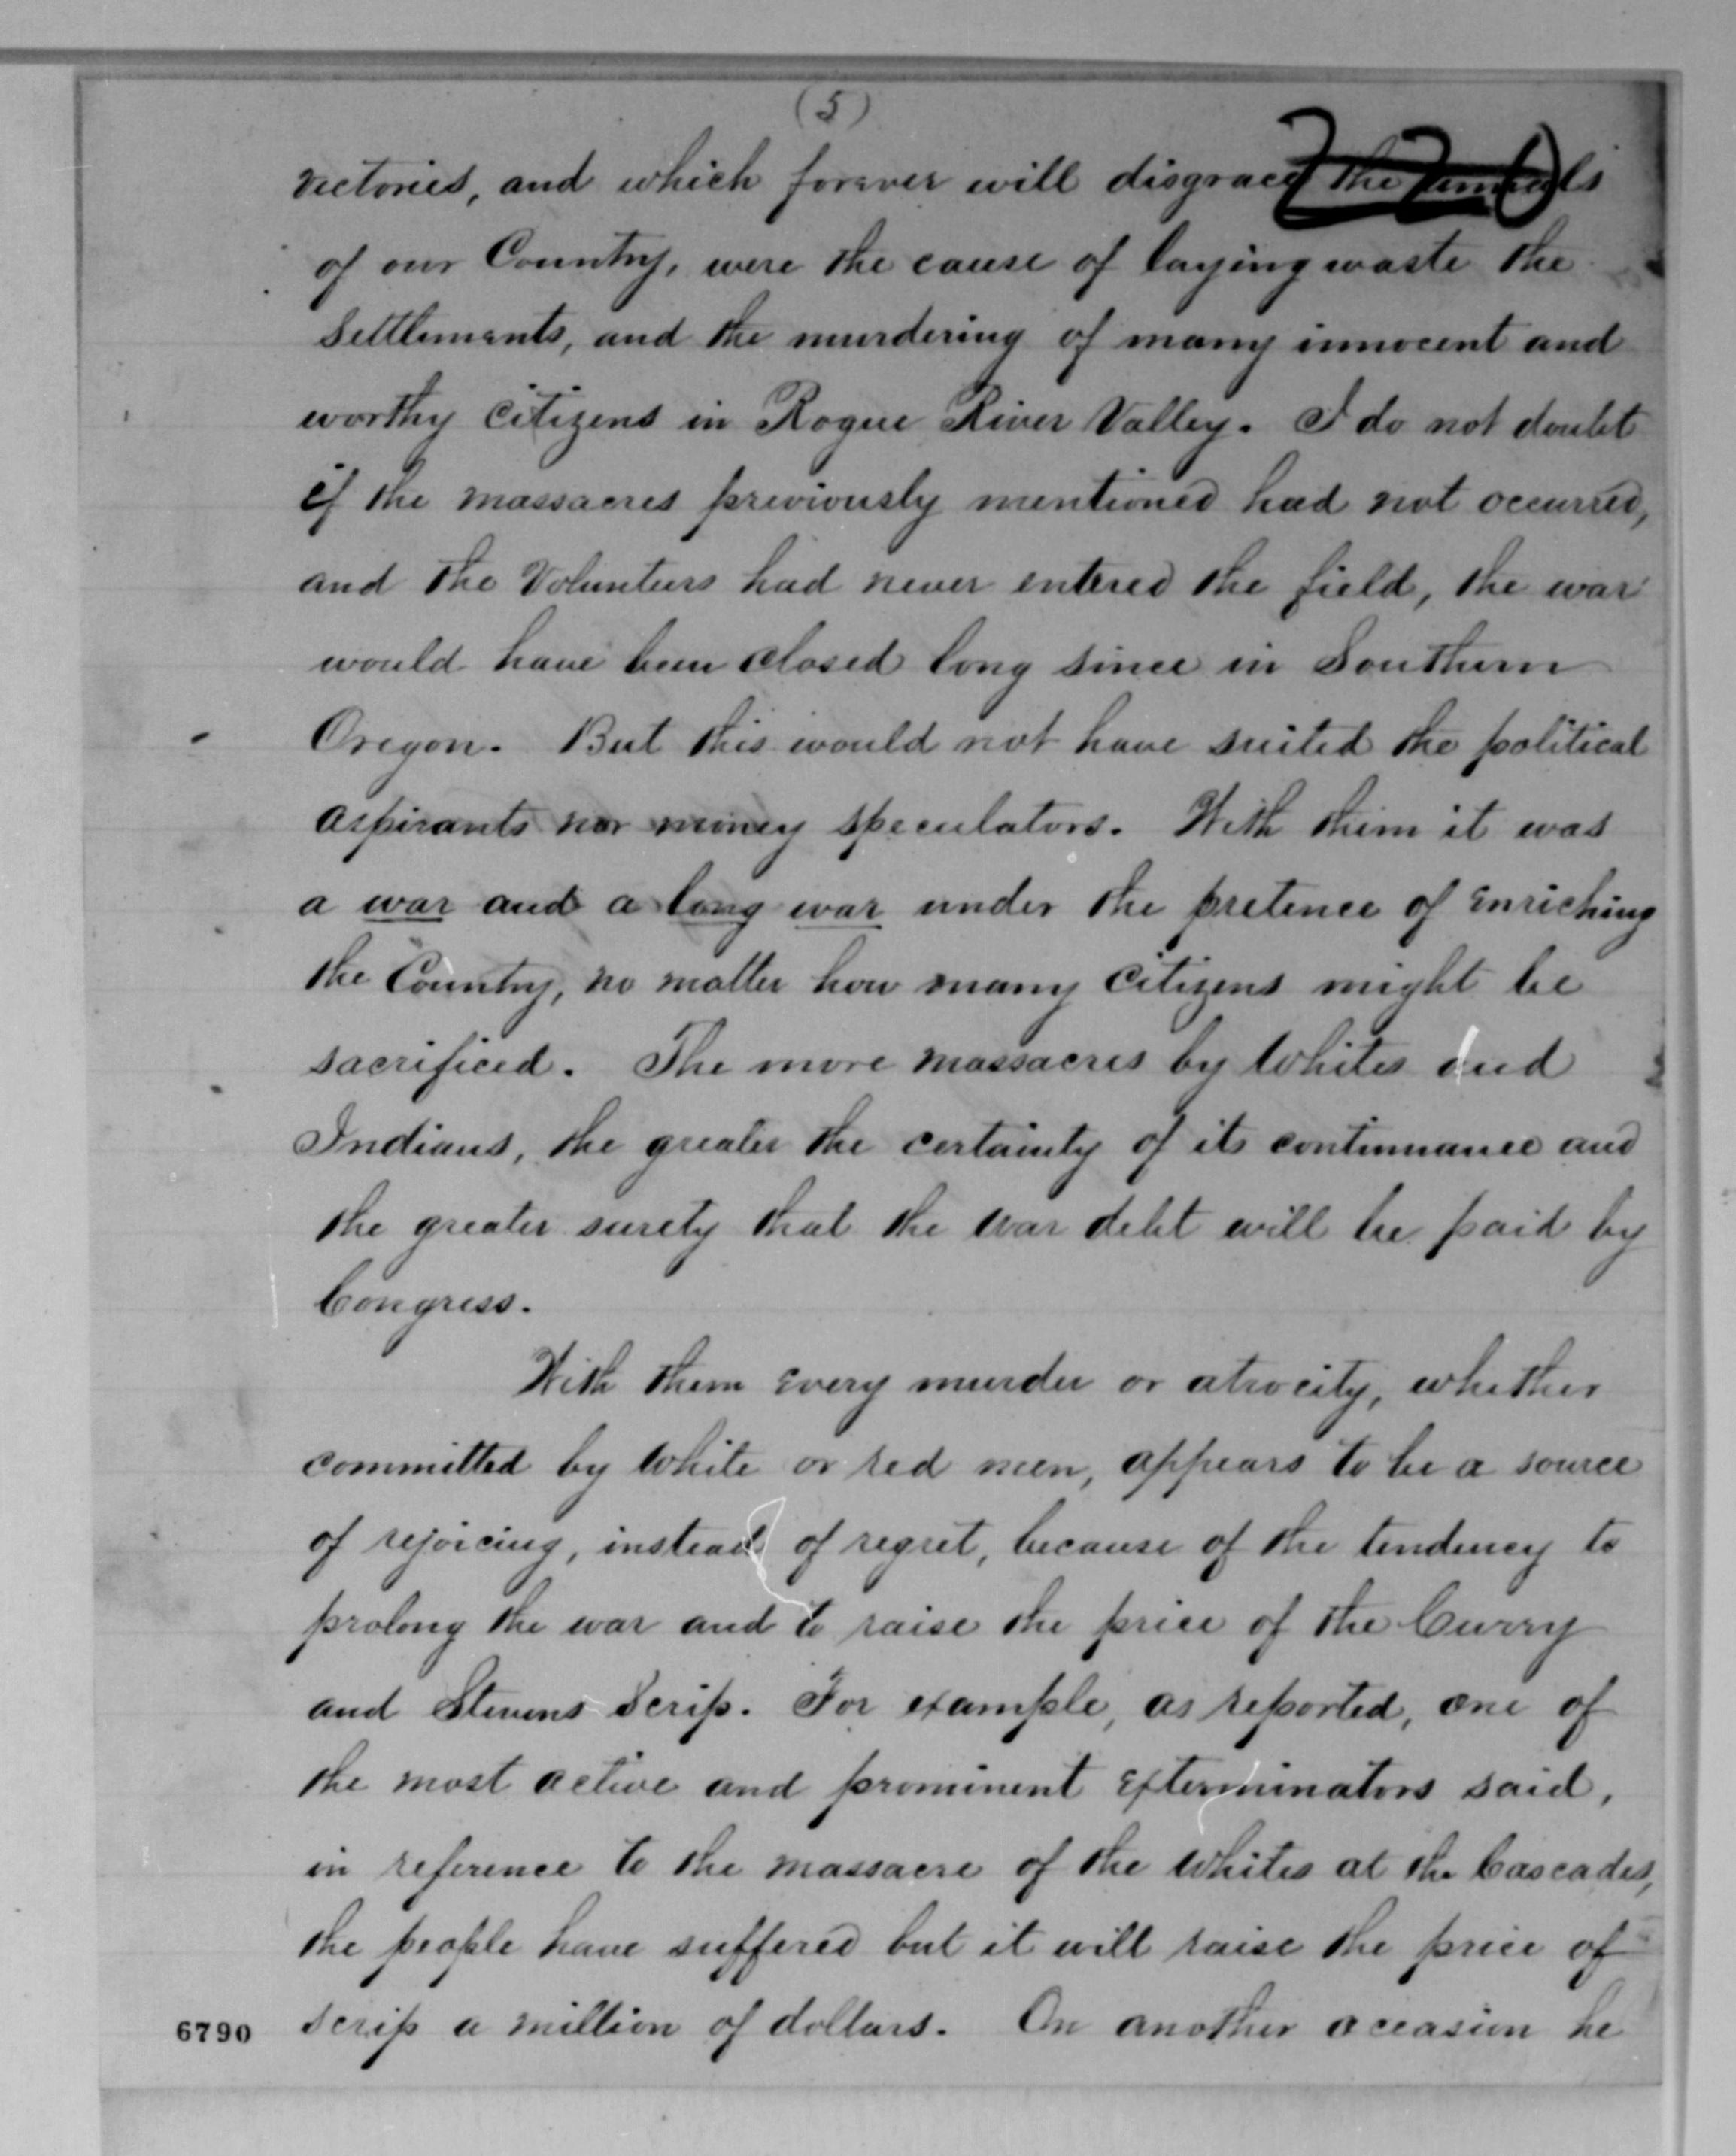 (5)
victories, and which forever will disgrace the annals
of our Country, were the cause of laying waste the
Settlements, and the murdering of many innocent and
worthy Citizens in Rogue River Valley. I do not doubt
if the massacres previously mentioned had not occurred,
and the Volunteers had never entered the field, the war
would have been closed long since in Southern
Oregon. But this would not have suited the political
aspirants nor money speculators. With them it was
a war and a long war under the pretence of enriching
the Country, no matter how many Citizens might be
sacrificed. The more massacres by Whites and
Indians, the greater the certainty of its continuance and
the greater surety that the war debt will be paid by
Congress.
With them every murder or atrocity, whether
committed by White or red men, appears to be a source
of rejoicing, instead of regret, because of the tendency to
prolong the war and to raise the price of the Curry
and Stevens Scrip. For example, as reported, one of
the most active and prominent exterminators said,
in reference to the massacre of the Whites at the Cascades,
the people have suffered but it will raise the price of
6790 scrip a million of dollars. On another occasion he